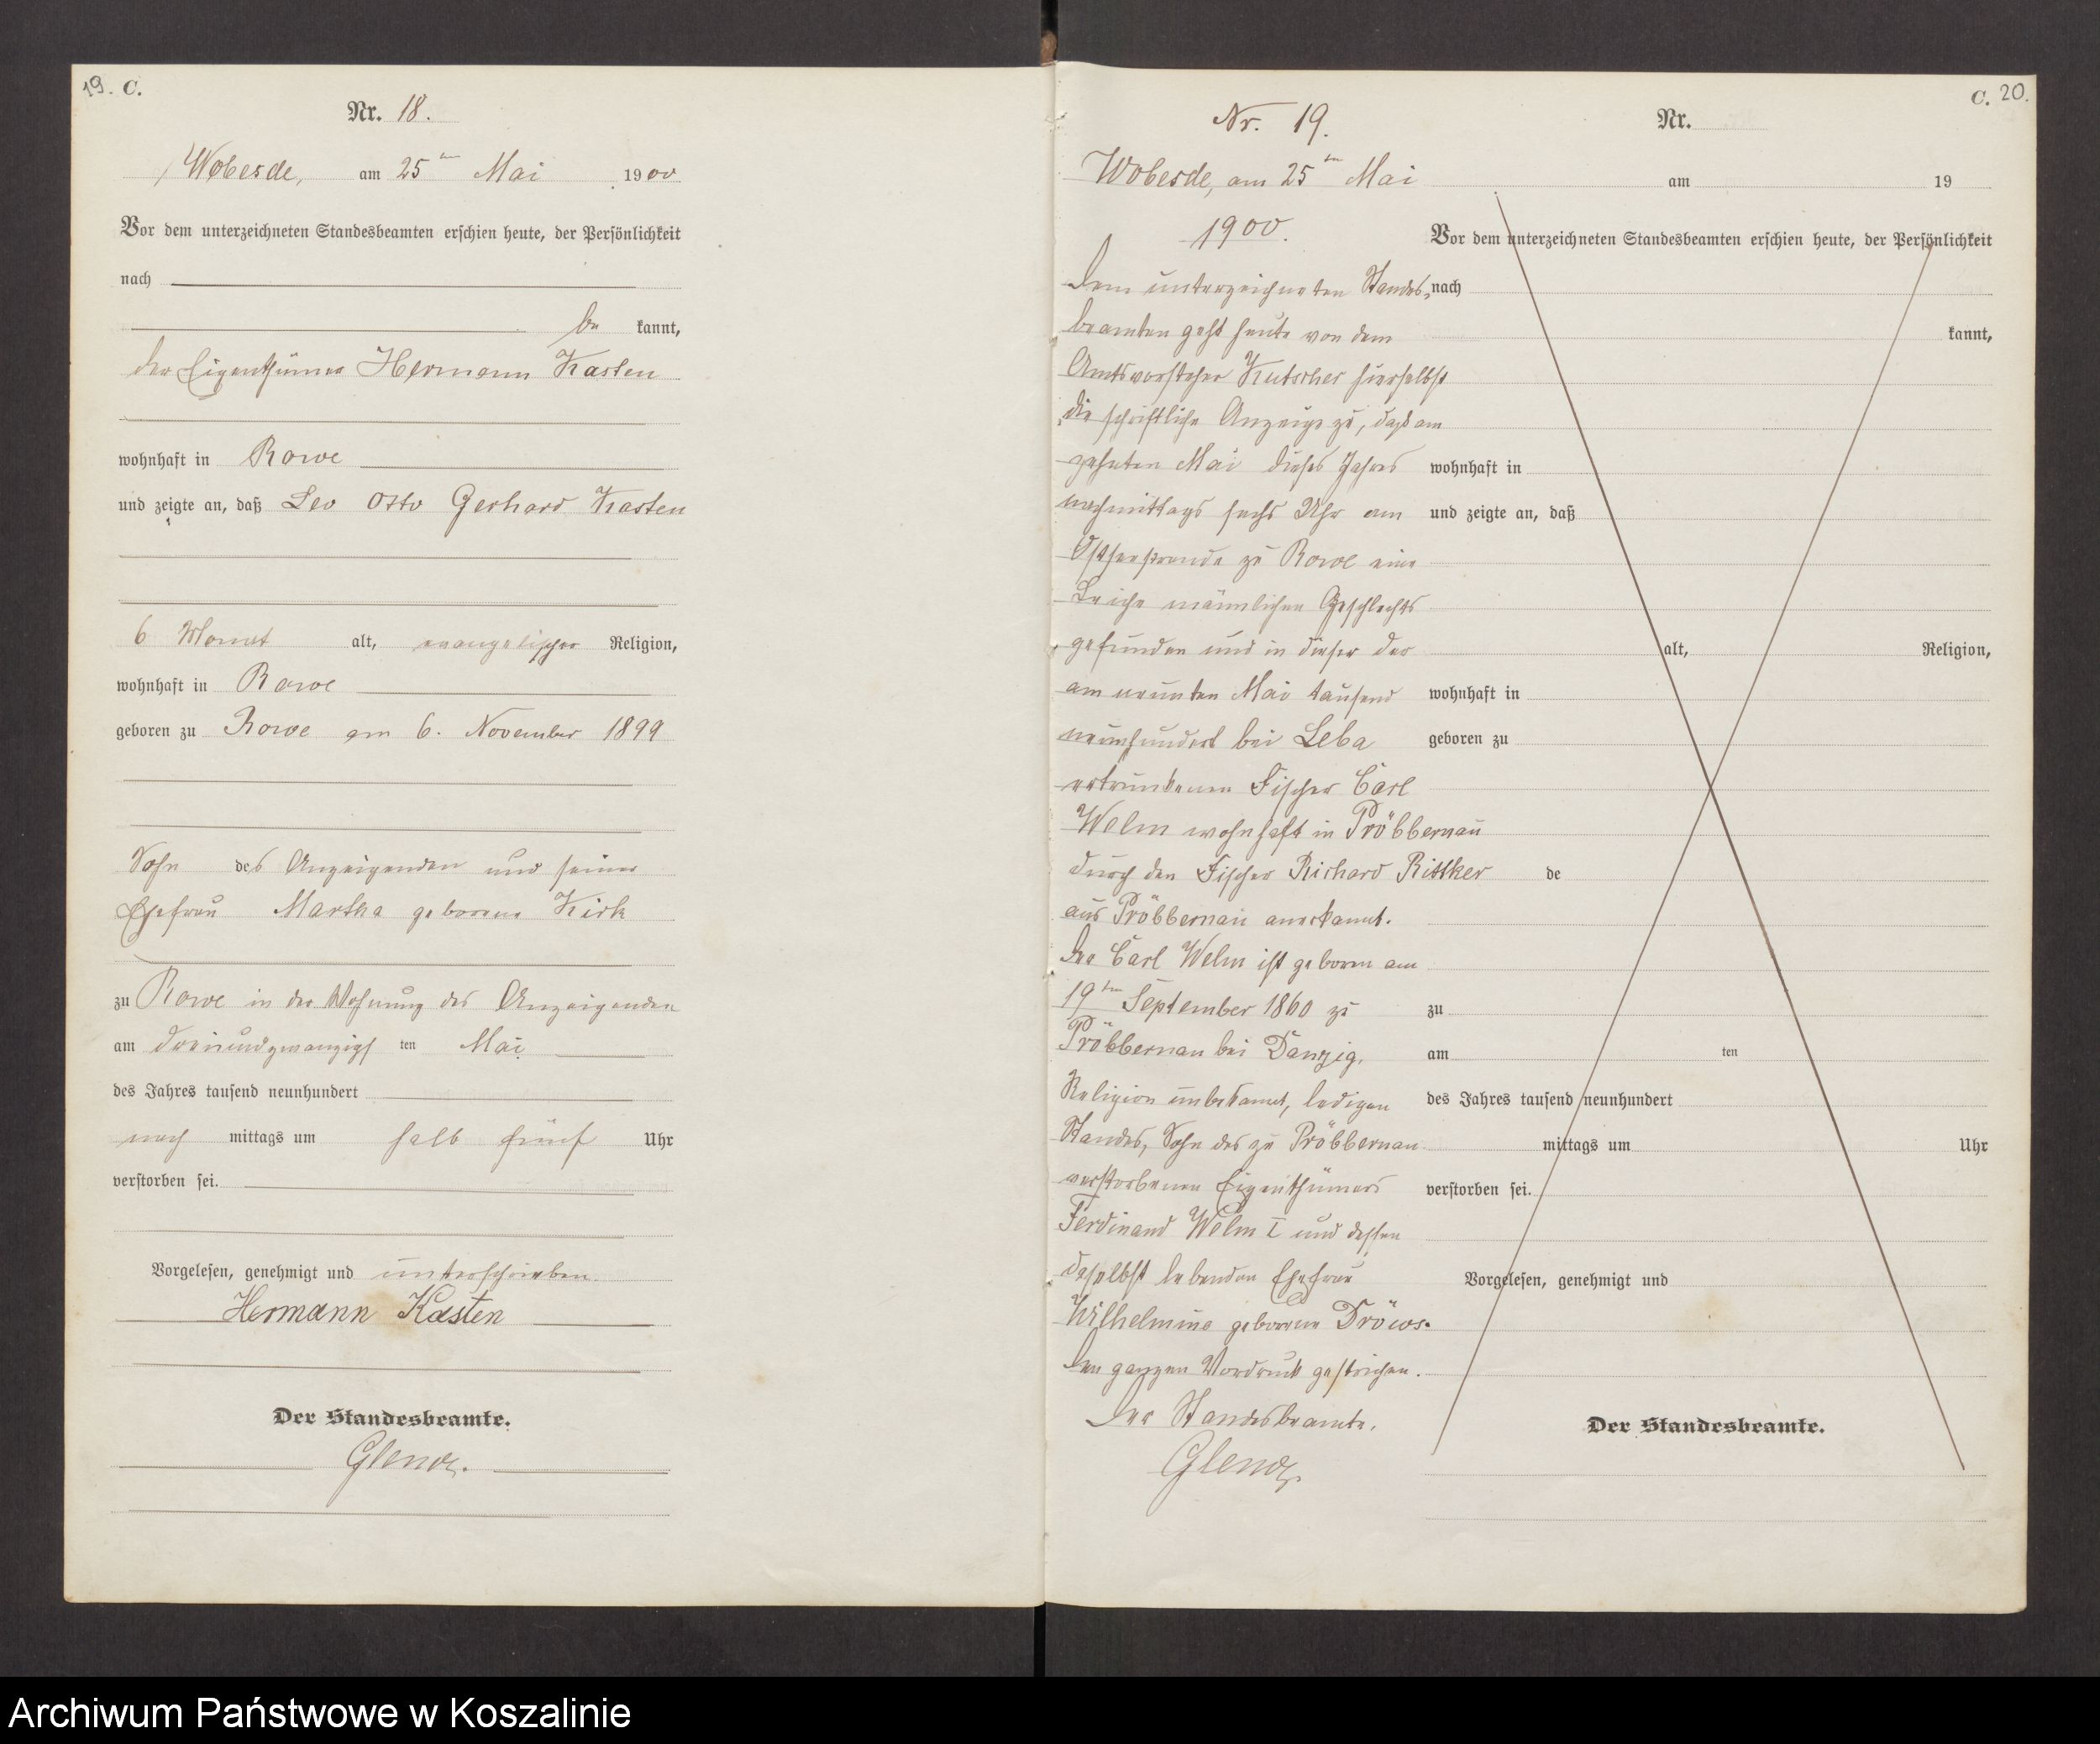 19. C.
Nr. 18.
Wobesde, am 25ten Mai 1900
Vor dem unterzeichneten Standesbeamten erschien heute, der Persönlichkeit
nach
be kannt,
der Eigenthümer Hermann Kasten
wohnhaft in Rowe
und zeigte an, daß Leo Otto Gerhard Kasten
6 Monat alt, evangelischer Religion,
wohnhaft in Rowe
geboren zu Rowe am 6. November 1899
Sohn des Anzeigenden und seiner
Ehefrau Martha geborene Kirk
zu Rowe in der Wohnung des Anzeigenden
am dreiundzwanzigsten Mai
des Jahres tausend neunhundert
nach mittags um halb fünf Uhr
verstorben sei.
Vorgelesen, genehmigt und unterschrieben.
Hermann Kasten
Der Standesbeamte.
C. 20.
Nr. 19.
Wobesde, am 25ten Mai
1900.
Dem unterzeichneten Standes-
beamten geht heute von dem
Amtsvorsteher Kutscher hierselbst
die schriftliche Anzeige zu, daß am
zehnten Mai dieses Jahres
nachmittags sechs Uhr am
Ostseestrande zu Rowe eine
Leiche männlichen Geschlechts
gefunden und in dieser der
am neunten Mai tausend
neunhundert bei Leba
ertrunkenen Fischer Carl
Welm wohnhaft in Pröbbernau
durch den Fischer Richard Rittker
aus Pröbbernau anerkannt.
Der Carl Welm ist geboren am
19ten September 1860 zu
Pröbbernau bei Danzig,
Religion unbekannt, ledigen
Standes, Sohn des zu Pröbbernau
verstorbenen Eigenthümers
Ferdinand Welm I und dessen
daselbst lebenden Ehefrau
Wilhelmine geborene Dröws.
Den ganzen Vordruck gestrichen.
Der Standesbeamte.
Nr.
am 19
Vor dem unterzeichneten Standesbeamten erschien heute, der Persönlichkeit
nach
kannt,
wohnhaft in
und zeigte an, daß
alt, Religion,
wohnhaft in
geboren zu
de
zu
am ten
des Jahres tausend neunhundert
mittags um Uhr
verstorben sei.
Vorgelesen, genehmigt und
Der Standesbeamte.
Archiwum Państwowe w Koszalinie